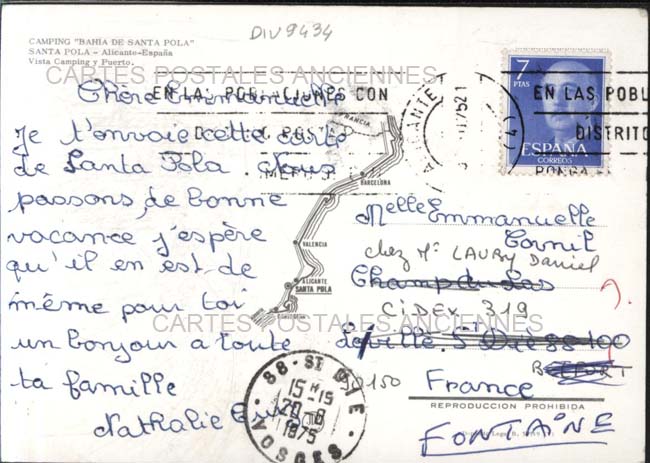 DIV9434
CAMPING "BAHIA DE SANTA POLA"
SANTA POLA - Alicante-España
Vista Camping y Puerto.
CARTES POSTALES ANCIENNES
7
PTAS
ESPAÑA
CORREOS
EN LAS POBLACIONES CON
EN LAS POBU
DISTRITO
PONGA
ALICANTE
Chère Emmanuelle
Je t'envoie cette carte
de Santa Pola Nous
passons de bonne
vacance j'espère
qu'il en est de
même pour toi
un bonjour a toute
ta famille
Nathalie
FRANCIA
BARCELONA
VALENCIA
ALICANTE
SANTA POLA
Melle Emmanuelle
Cornil
chez Mr LAURY Daniel
Champ du Pas
CIDEX 319
88100
90150
BELFORT
France
REPRODUCCION PROHIBIDA
FONTAINE
CARTES POSTALES ANCIENNES
88-ST DIE
15H15
20-8
1975
VOSGES